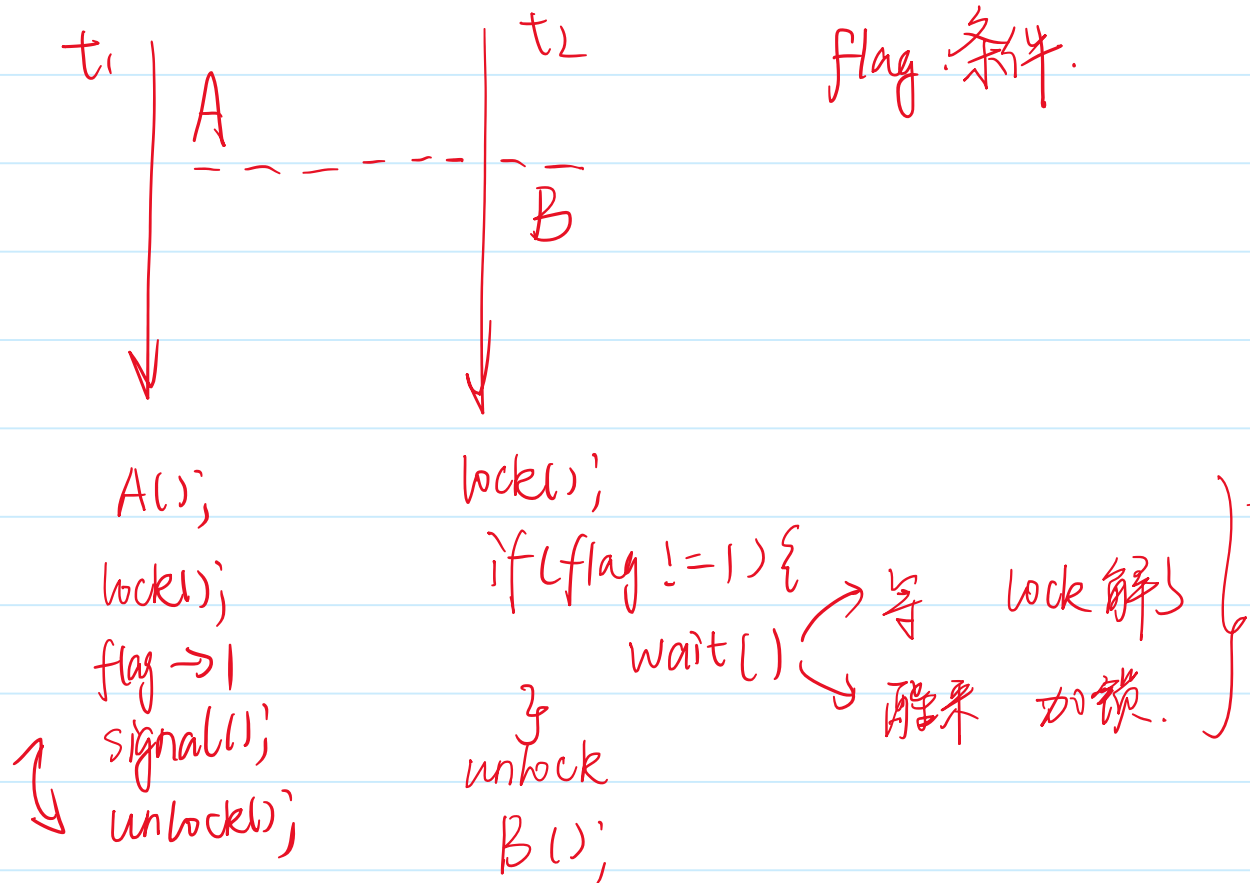 t1
t2
flag 条件.
A
B
A();
lock();
flag → 1
signal();
unlock();
lock();
if(flag != 1) {
wait()
}
unlock
B();
等 lock 解
醒来 加锁.